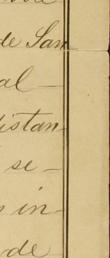 de San
al
distan
se-
in
de